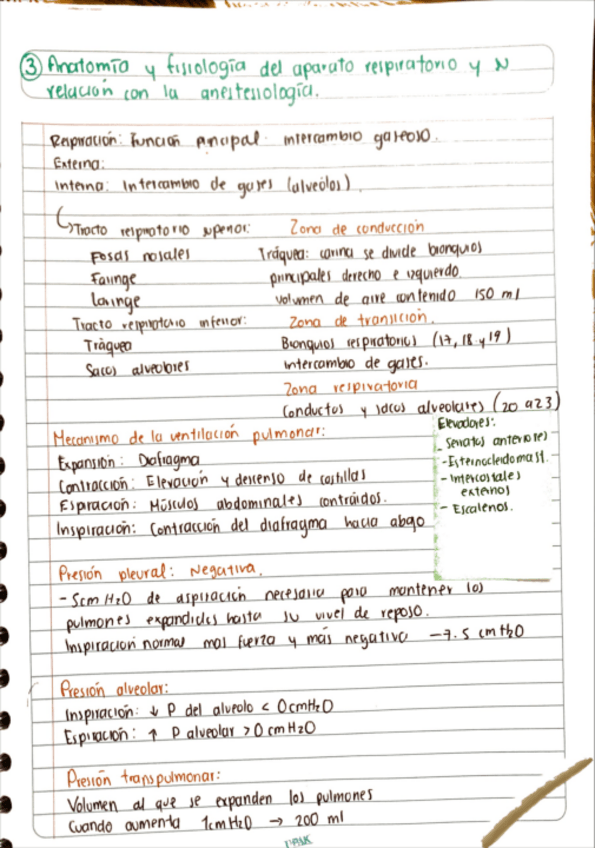 ③ Anatomía y fisiología del aparato respiratorio y
relación con la anestesiología.
Respiración: Función principal intercambio gaseoso.
Externa:
Interna: Intercambio de gases (alveólos).
↳ Tracto respiratorio superior: Zona de conducción
Fosas nasales Tráquea: carina se divide bronquios
Faringe principales derecho e izquierdo.
Laringe volumen de aire contenido 150 ml
Tracto respiratorio inferior: Zona de transición.
Tráquea Bronquios respiratorios (17, 18 y 19)
Sacos alveolares intercambio de gases.
Zona respiratoria
Conductos y sacos alveolares (20 a 23)
Mecanismo de la ventilación pulmonar:
Expansión: Diafragma
Contracción: Elevación y descenso de costillas
Espiración: Músculos abdominales contraidos.
Inspiración: Contracción del diafragma hacia abajo
Elevadores:
- Serratos anteriores
- Esternocleidomast.
- Intercostales
externos
- Escalenos.
Presión pleural: Negativa.
- 5cm H2O de aspiración necesaria para mantener los
pulmones expandidos hasta su nivel de reposo.
Inspiración normal mas fuerza y más negativa -7.5 cmH2O
Presión alveolar:
Inspiración: ↓ P del alveolo < 0cmH2O
Espiración: ↑ P alveolar > 0 cmH2O
Presión transpulmonar:
Volumen al que se expanden los pulmones
Cuando aumenta 1cmH2O → 200 ml